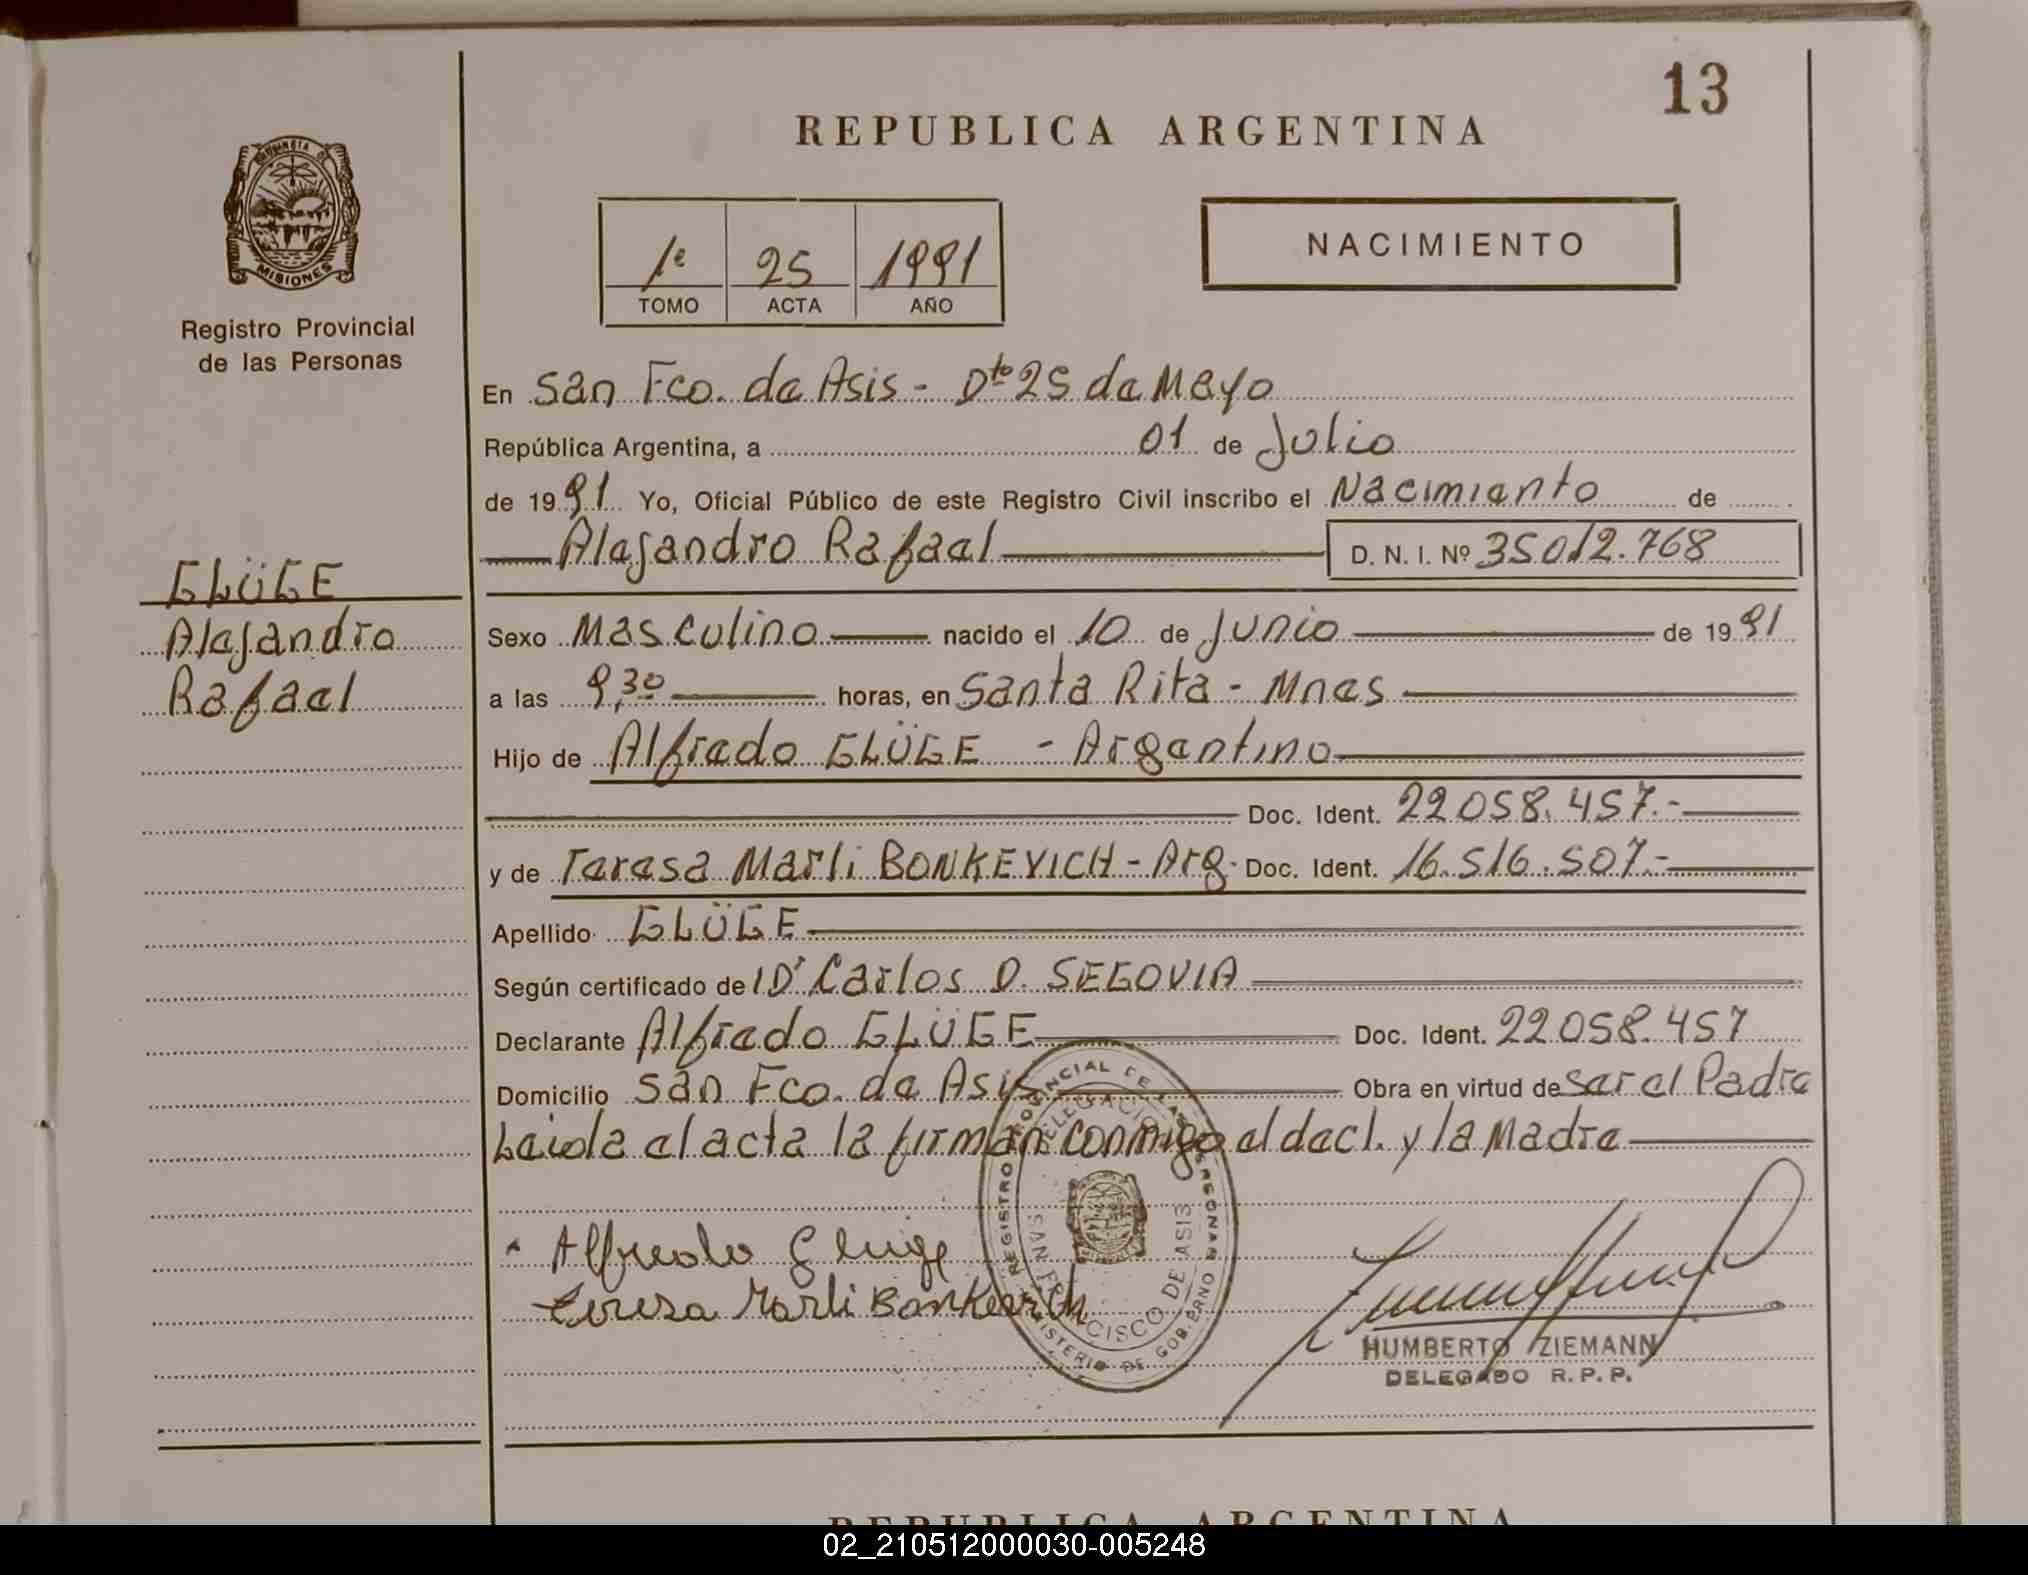 13
REPUBLICA ARGENTINA
PROVINCIA DE
MISIONES
Registro Provincial
de las Personas
1º 25 1991
TOMO ACTA AÑO
NACIMIENTO
En San Fco. de Asis - Dto 25 de Mayo
República Argentina, a 01 de Julio
de 1991 Yo, Oficial Público de este Registro Civil inscribo el Nacimiento de
Alejandro Rafael D. N. I. Nº 35012.768
GLÜGE
Alejandro
Rafael
Sexo Masculino nacido el 10 de Junio de 1991
a las 9,30 horas, en Santa Rita - Mnes
Hijo de Alfredo GLÜGE - Argentino
Doc. Ident. 22058.457.-
y de Teresa Marli BONKEVICH - Arg. Doc. Ident. 16.516.507.-
Apellido GLÜGE
Según certificado de 1Dr Carlos D. SEGOVIA
Declarante Alfredo GLÜGE Doc. Ident. 22058.457
Domicilio San Fco. de Asis Obra en virtud de ser el Padre
Leida el acta la firman conmigo el decl. y la Madre
REGISTRO PROVINCIAL DE LAS PERSONAS
DELEGACION
SAN FRANCISCO DE ASIS
MINISTERIO DE GOBIERNO
Alfredo Gluge
Teresa Marli Bonkevich
HUMBERTO ZIEMANN
DELEGADO R.P.P.
REPUBLICA ARGENTINA
02_210512000030-005248